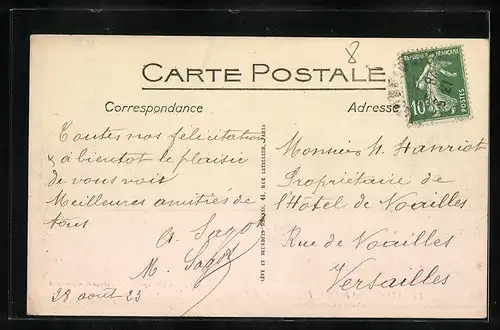 8
CARTE POSTALE
Correspondance
Adresse
RÉPUBLIQUE FRANÇAISE
10c
POSTES
Toutes nos félicitations
& à bientot le plaisir
de vous voir
Meilleures amitiés de
tous
A. Sagot
M. Sagot
28 août 23
LÉVY ET NEURDEIN RÉUNIS, 44, RUE LETELLIER, PARIS
Monsieur H. Hanriot
Propriétaire de
l'Hôtel de Noailles
Rue de Noailles
Versailles